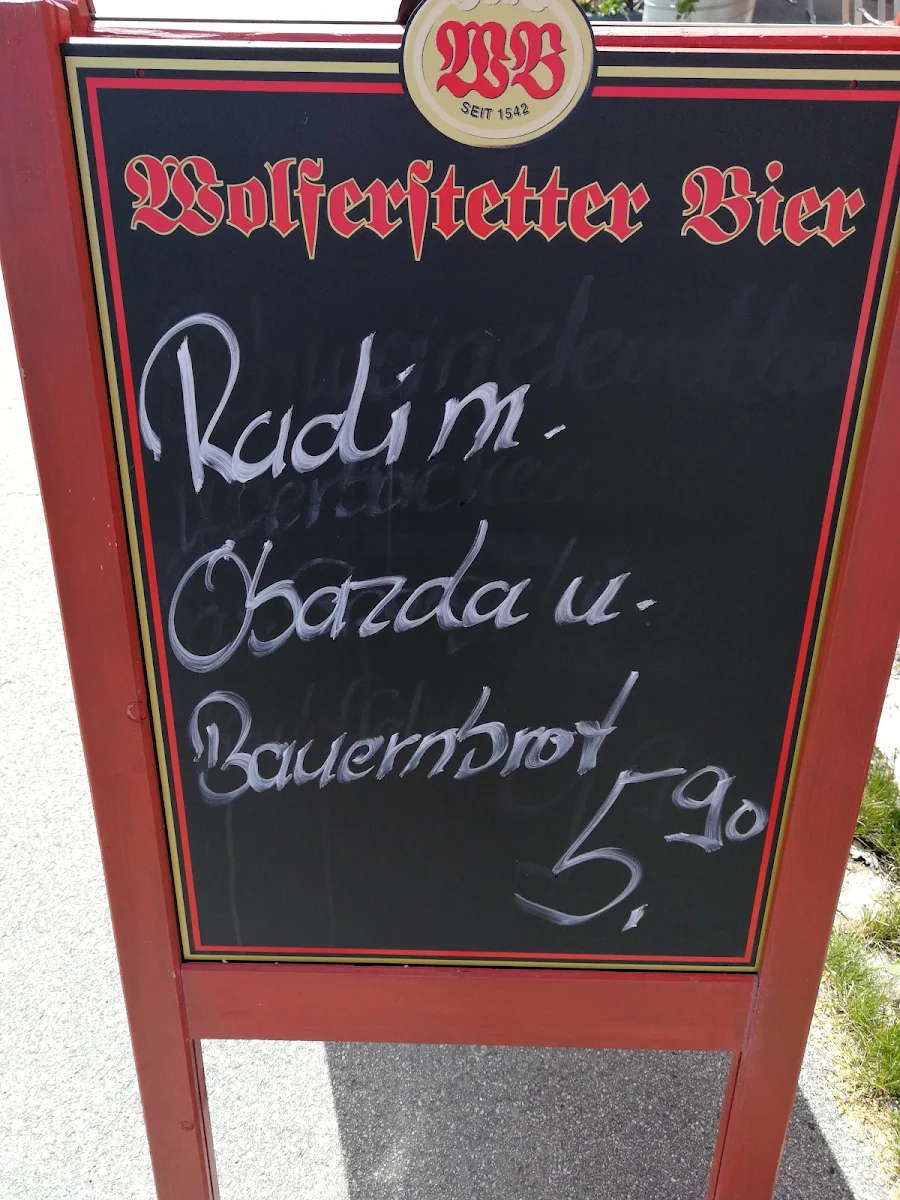 WB
SEIT 1542
Wolferstetter Bier
Radi m.
Obazda u.
Bauernbrot
5,90